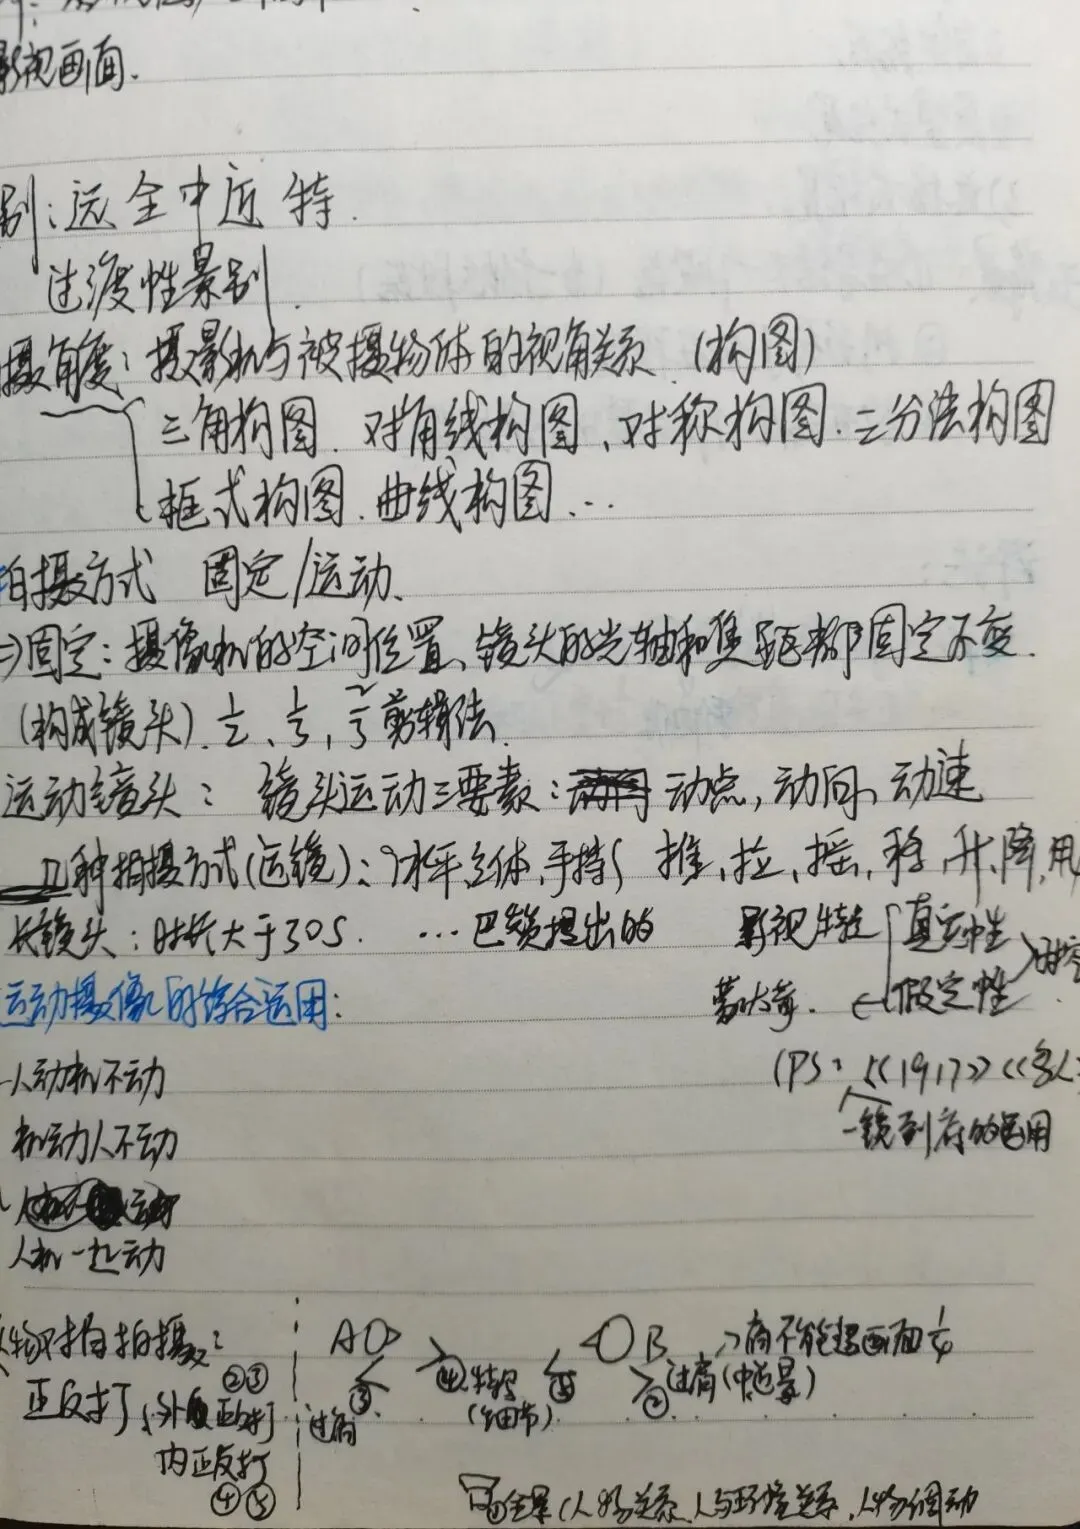 影视画面.
别:远全中近特.
过渡性景别.
摄角度:摄影机与被摄物体的视角关系.(构图)
三角构图.对角线构图、对称构图.三分法构图
框式构图.曲线构图...
拍摄方式 固定/运动、
固定:摄像机的空间位置、镜头的光轴和焦距都固定不变.
(构成镜头).剪辑法.
运动镜头: 镜头运动三要素:动点,动向,动速
几种拍摄方式(运镜):水平,立体,手持 推,拉,摇,移,升,降,甩
长镜头:时长大于30S. ...巴赞提出的 影视特性 真实性
运动摄像的综合运用: 蒙太奇. ← 假定性
人动机不动 (PS:《1917》《
机动人不动 一镜到底的运用
人机一起动
物对话拍摄: AO OB 肩不能超画面1/4
②③ ③ ④ 特写 ⑤ ② 过肩(中近景)
正反打、外正反打 过肩 (细节)
内正反打
④⑤
①全景(人物关系,人与环境关系,人物调动